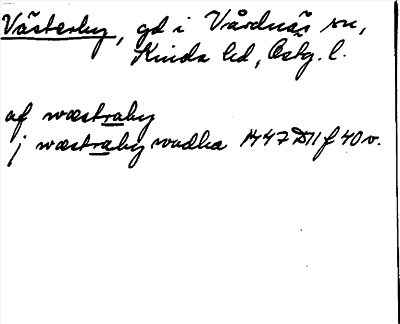 Västerby, gd i Vårdnäs sn,
Kinda hd, Östg. l.
af wæstraby
j wæstraby wadha 1447 D11 f 40 v.